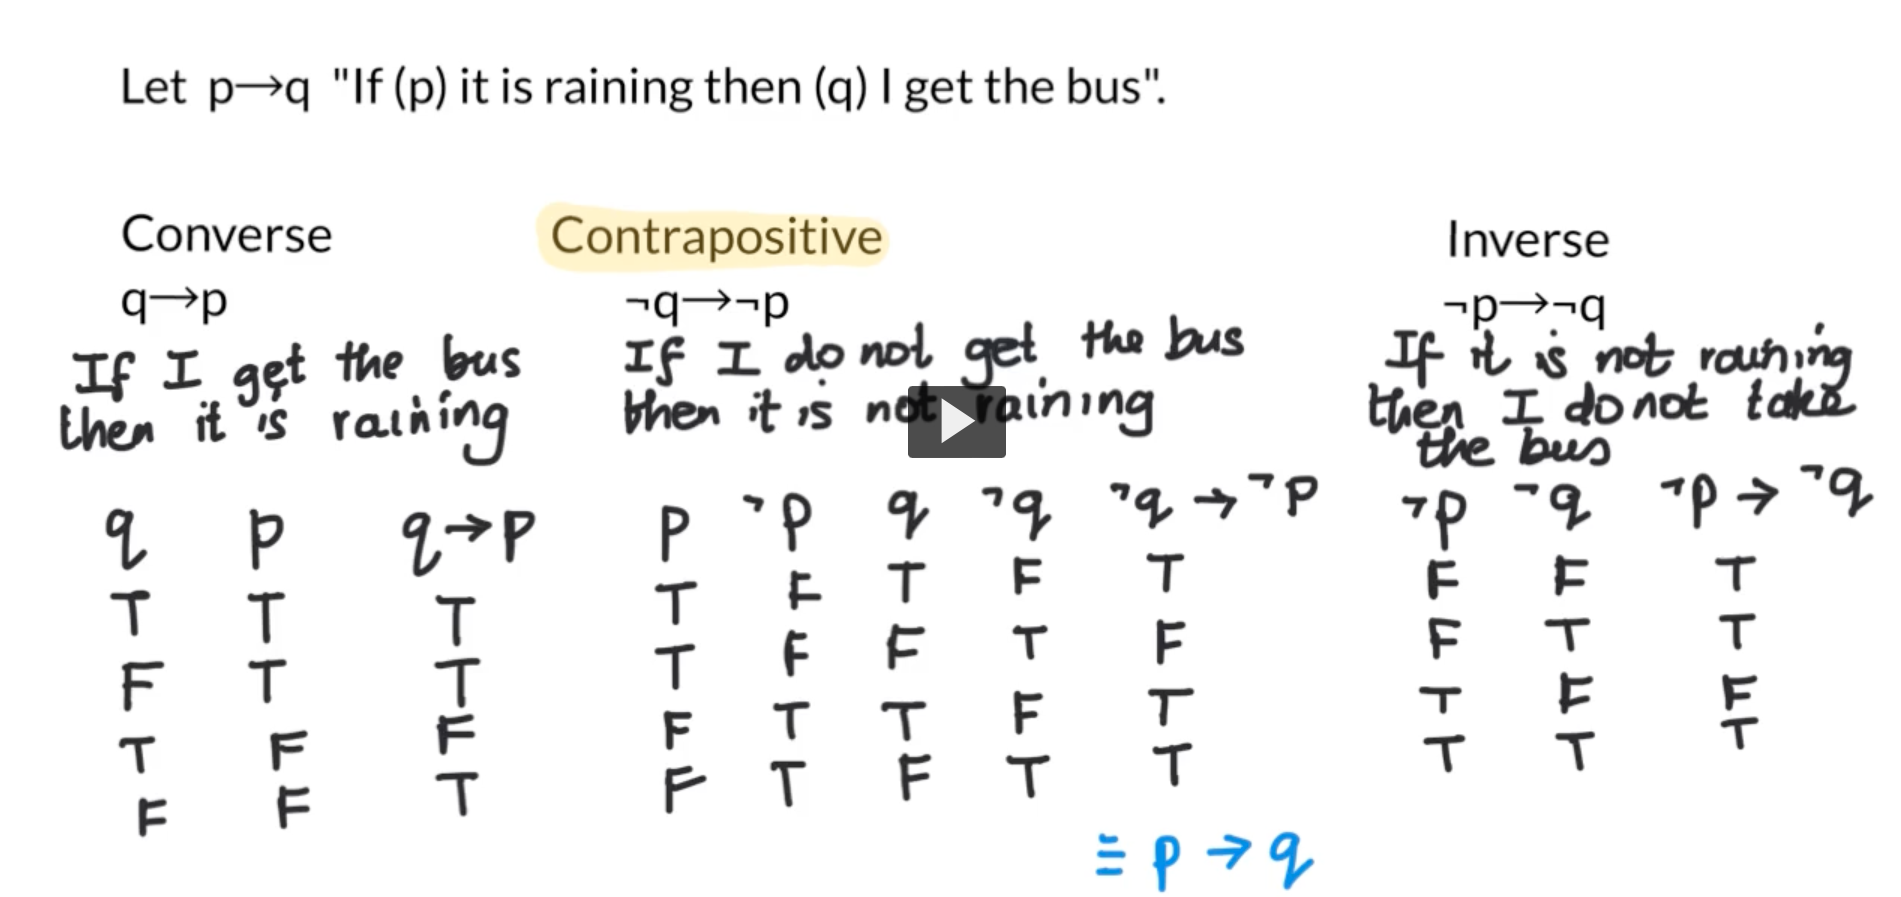 Let p→q "If (p) it is raining then (q) I get the bus".
Converse
q→p
If I get the bus
then it is raining
q p q→p
T T T
F T T
T F F
F F T
Contrapositive
¬q→¬p
If I do not get the bus
then it is not raining
p ¬p q ¬q ¬q→¬p
T F T F T
T F F T F
F T T F T
F T F T T
≡ p→q
Inverse
¬p→¬q
If it is not raining
then I do not take
the bus
¬p ¬q ¬p→¬q
F F T
F T T
T F F
T T T